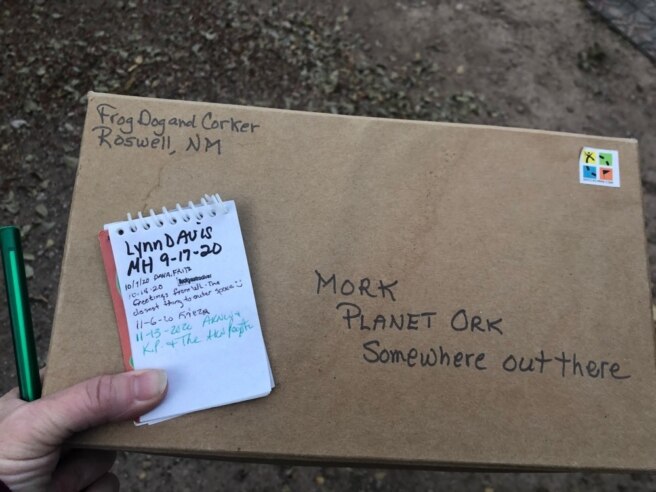 Frog Dog and Corker
Roswell, NM
Lynn DAvis
MH 9-17-20
10/7/20 DANA.FRITZ
10-18-20
Greetings from WI-The
closest thing to outer space
11-6-20
11-13-2020
KP & The
MORK
PLANET ORK
Somewhere out there